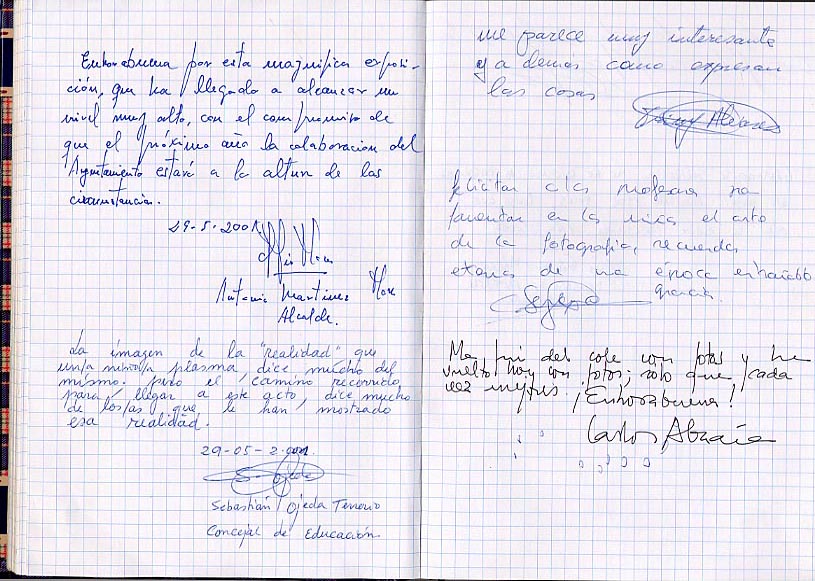 Enhorabuena por esta magnífica exposi-
ción, que ha llegado a alcanzar un
nivel muy alto, con el compromiso de
que el próximo año la colaboración del
Ayuntamiento estará a la altura de las
circunstancias.
29-5-2001
Antonio Martínez
Alcalde.
La imagen de la "realidad" que
un/a muchacho/a plasma, dice mucho del
mismo. pero el camino recorrido
para llegar a este acto, dice mucho
de los/as que le han mostrado
esa realidad.
29-05-2.001
S. Ojeda
Sebastián Ojeda Tenorio
Concejal de Educación
me parece muy interesante
y a demas como expresan
las cosas
Felicitar a las profesoras
fomentar en los el arte
de la fotografía, recuerdos
de una época entrañable
gracias.
Me fui del cole con fotos y he
vuelto hoy con fotos; solo que, cada
vez mejores. ¡Enhorabuena!
Carlos